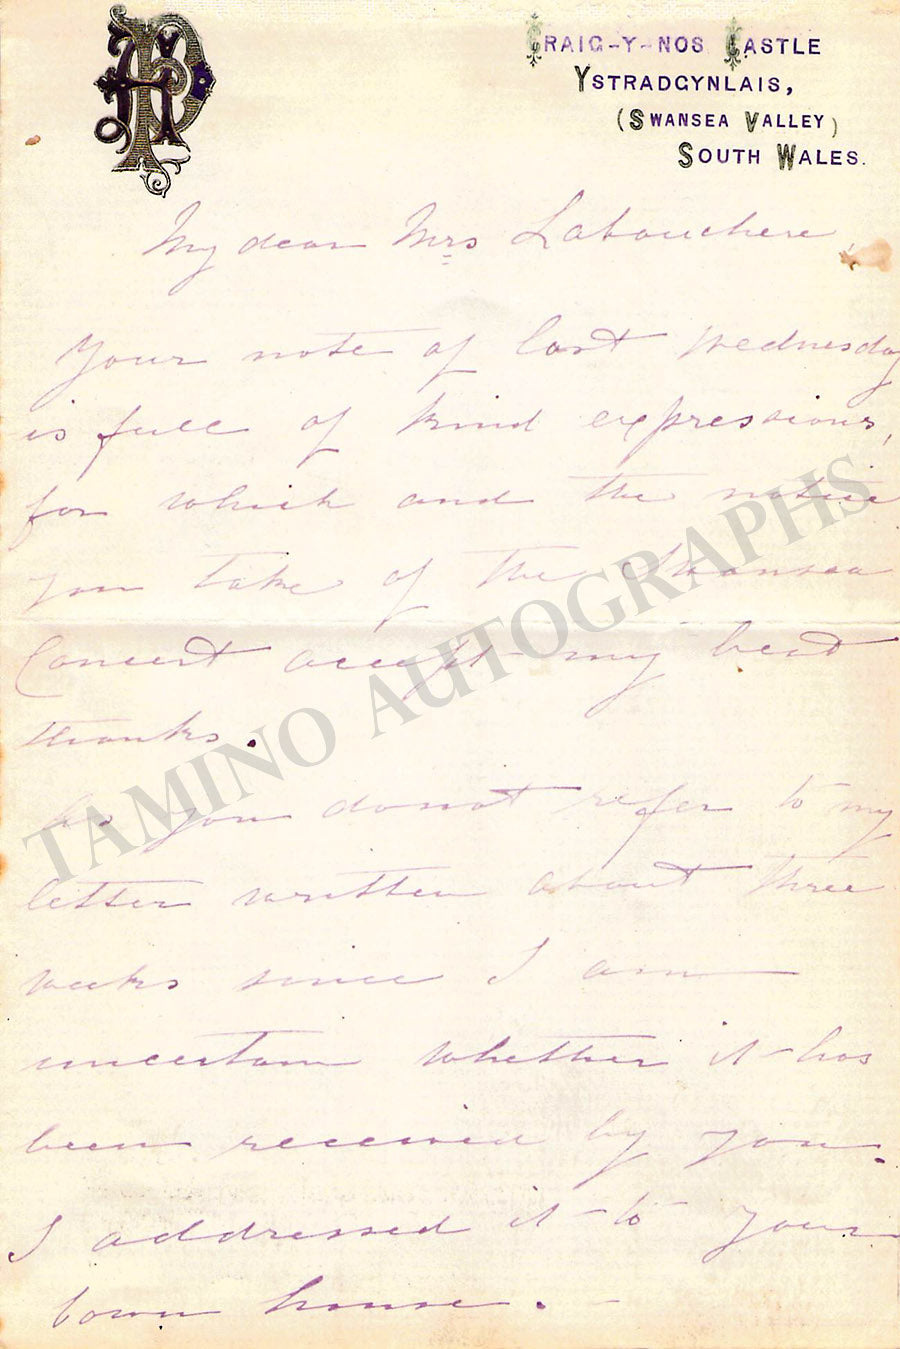 AP
CRAIG-Y-NOS CASTLE
YSTRADGYNLAIS,
(SWANSEA VALLEY)
SOUTH WALES.
My dear Mrs Labouchere,
Your note of last Wednesday
is full of kind expressions,
for which and the notice
you take of the Swansea
Concert accept my best
thanks.
As you donot refer to my
letter written about three
weeks since I am
uncertain whether it has
been received by you.
I addressed it to your
town house. –
TAMINO AUTOGRAPHS